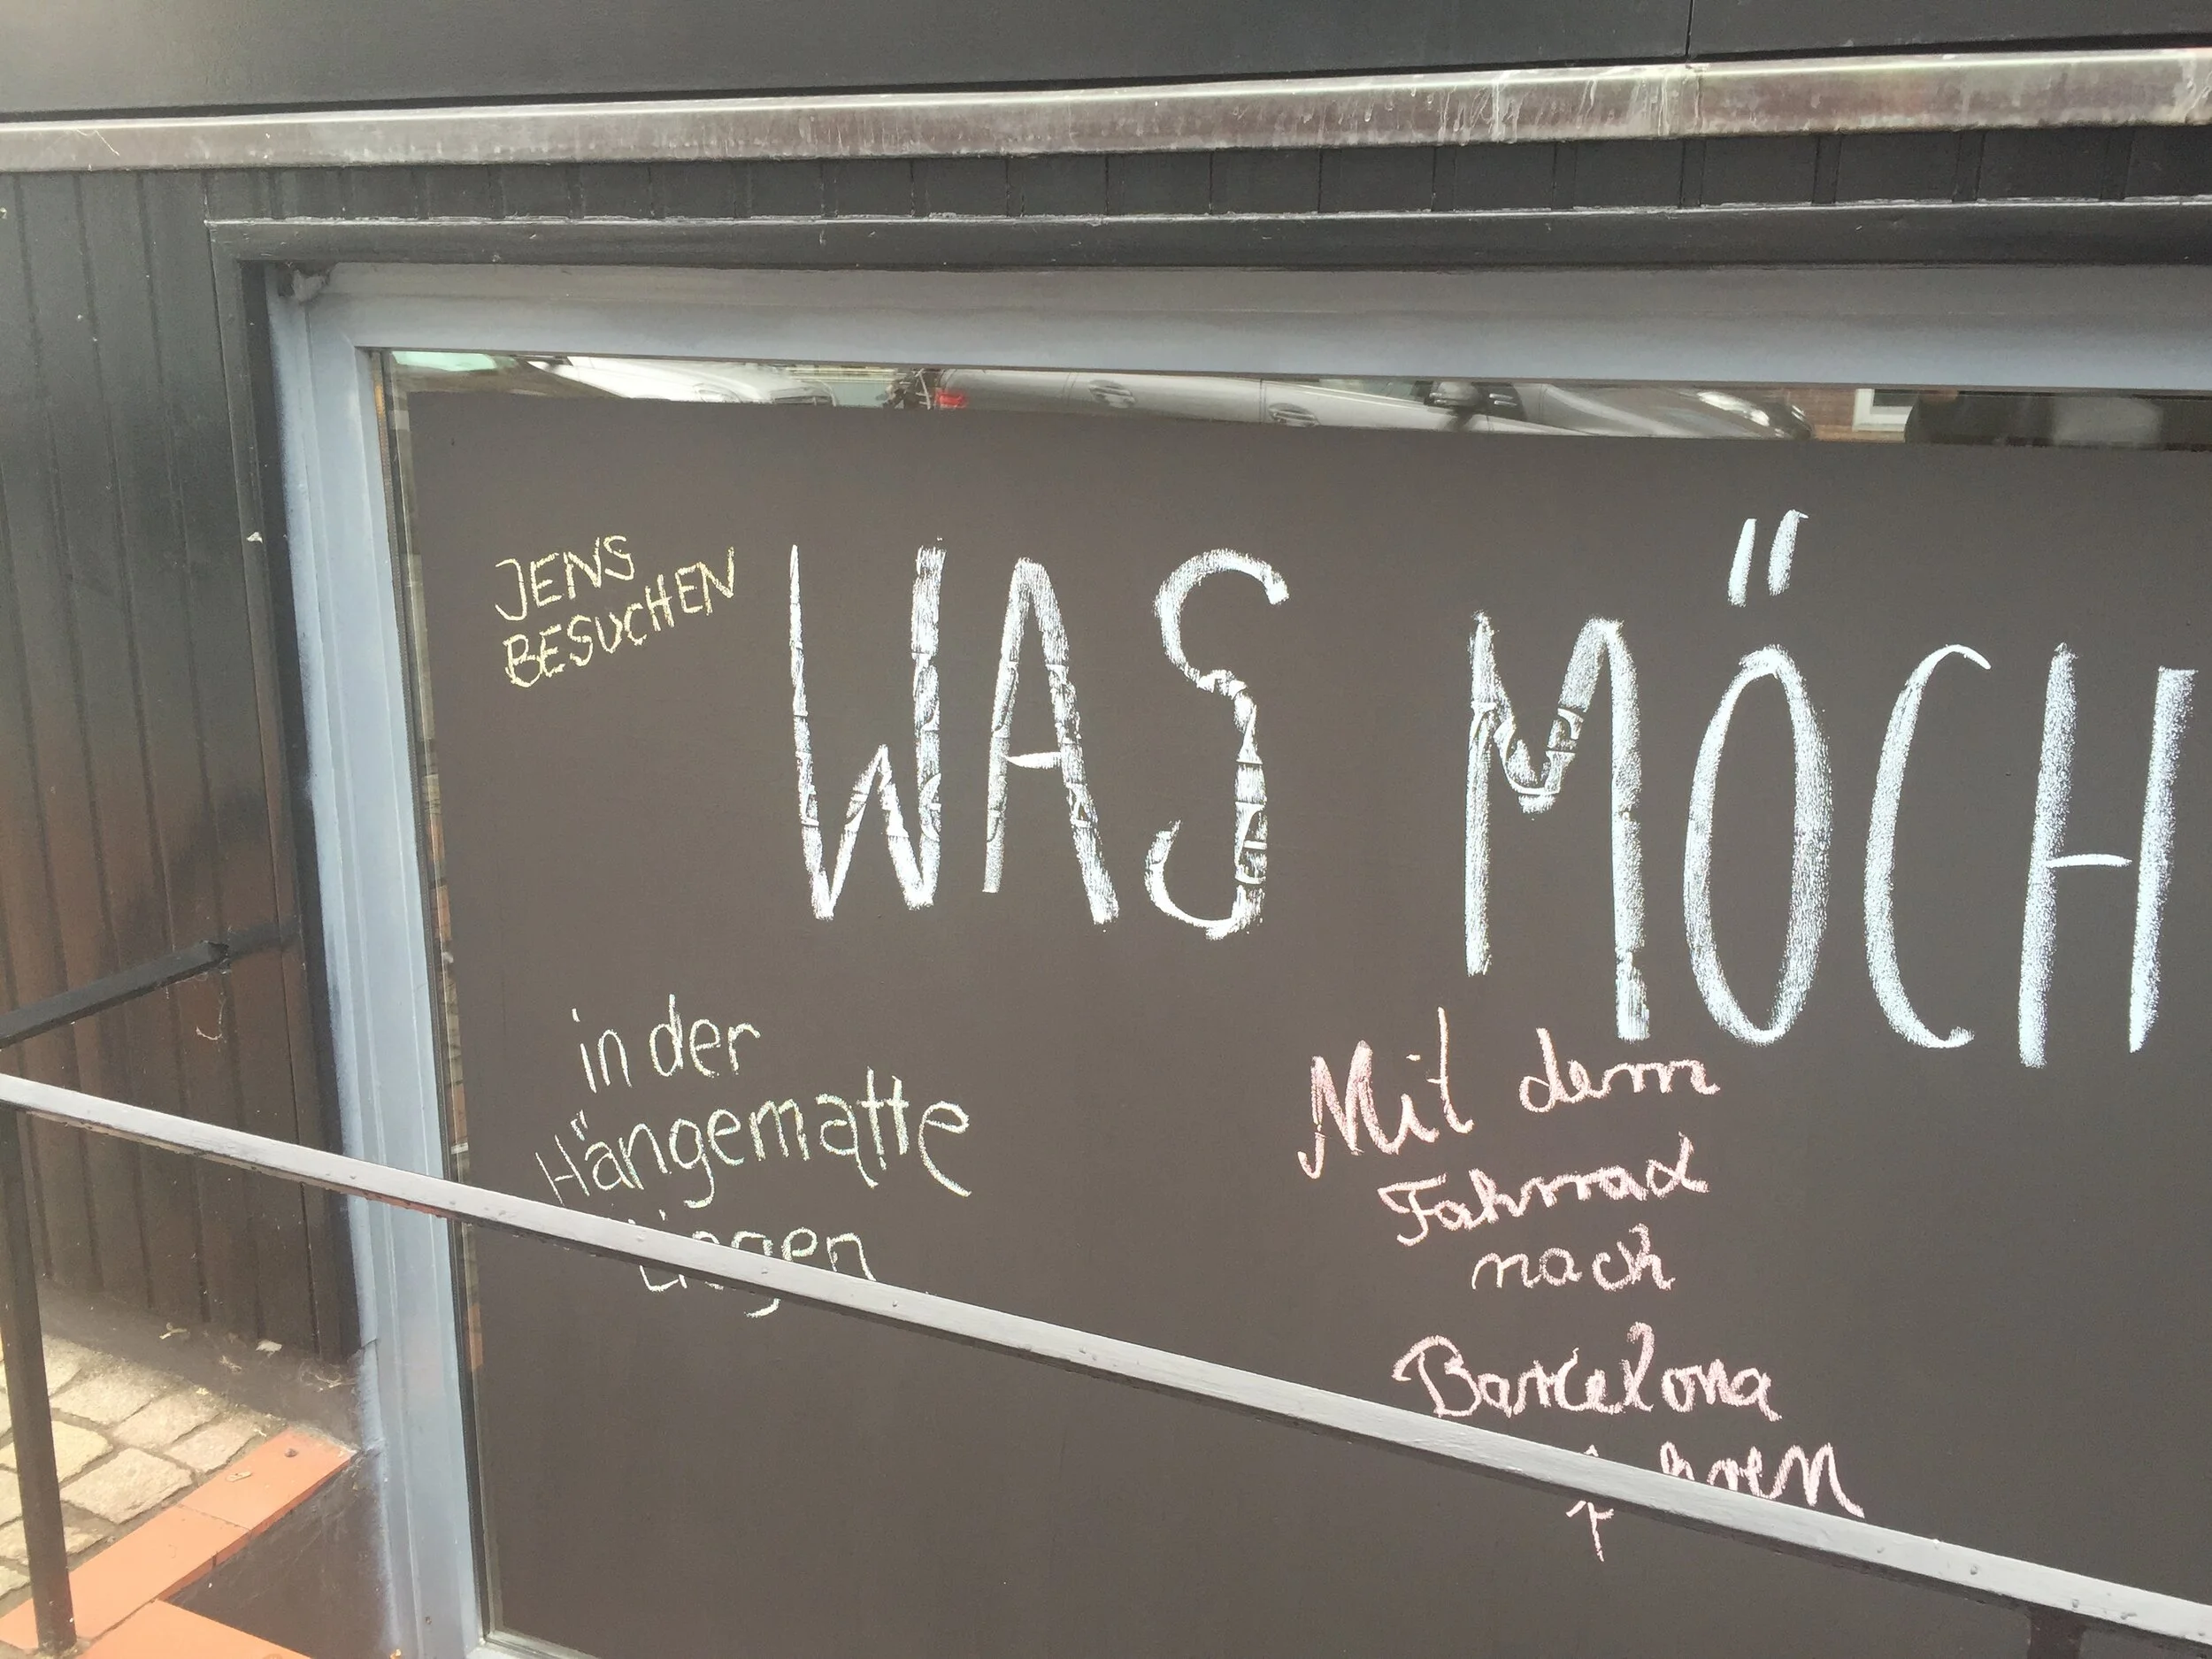 JENS
BESUCHEN
WAS MÖCH
in der
Hängematte
Liegen
Mit dem
Fahrrad
nach
Barcelona